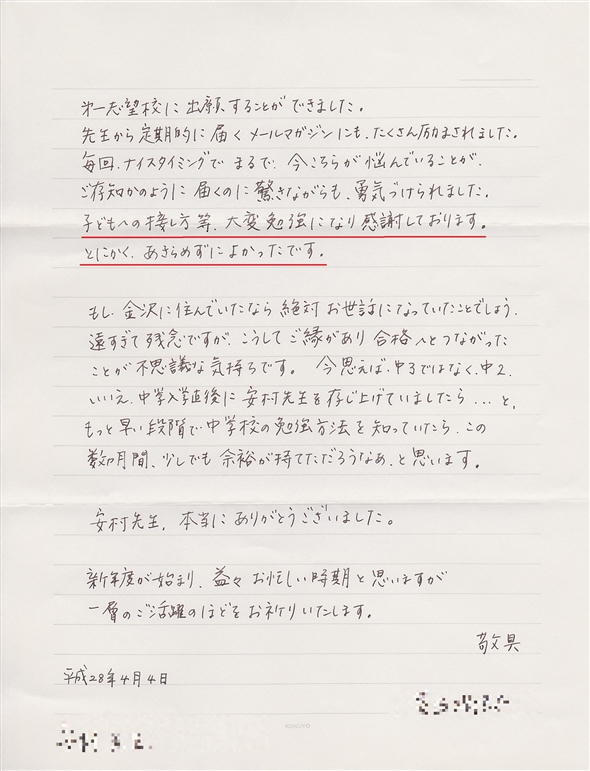 第一志望校に出願することができました。
先生から定期的に届くメールマガジンにも、たくさん励まされました。
毎回、ナイスタイミングで まるで、今こちらが悩んでいることが、
ご存知かのように 届くのに驚きながらも、勇気づけられました。
子どもへの接し方等、大変勉強になり感謝しております。
とにかく、あきらめずによかったです。
もし、金沢に住んでいたなら 絶対 お世話になっていたことでしょう。
遠すぎて残念ですが、こうして ご縁があり 合格へとつながった
ことが不思議な気持ちです。 今思えば、中3ではなく、中2、
いいえ、中学入学直後に 安村先生を存じ上げていましたら...と、
もっと早い段階で中学校の勉強方法を知っていたら、この
数か月間、少しでも余裕が持てただろうなあ、と思います。
安村先生、本当に ありがとうございました。
新年度が始まり、益々 お忙しい時期と思いますが
一層のご活躍のほどをお祈りいたします。
敬具
平成28年4月4日
KOKUYO